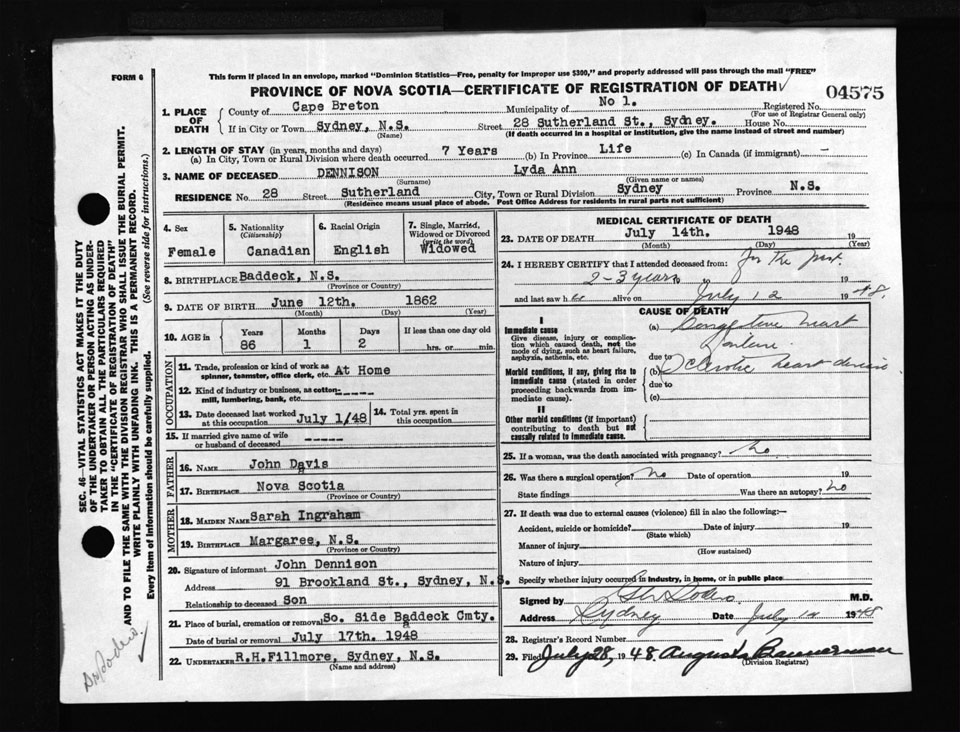 FORM 6
This form if placed in an envelope, marked "Dominion Statistics—Free, penalty for improper use $300," and properly addressed will pass through the mail "FREE"
PROVINCE OF NOVA SCOTIA—CERTIFICATE OF REGISTRATION OF DEATH
04575
1. PLACE OF DEATH County of Cape Breton Municipality of No 1. Registered No.
(For use of Registrar General only)
If in City or Town Sydney, N.S. Street 28 Sutherland St., Sydney. House No.
(Name) (If death occurred in a hospital or institution, give the name instead of street and number)
2. LENGTH OF STAY (in years, months and days)
(a) In City, Town or Rural Division where death occurred 7 Years (b) In Province Life (c) In Canada (if immigrant) –
3. NAME OF DECEASED DENNISON Lyda Ann
(Surname) (Given name or names)
RESIDENCE No. 28 Street Sutherland City, Town or Rural Division Sydney Province N.S.
(Residence means usual place of abode. Post Office Address for residents in rural parts not sufficient)
4. Sex
Female
5. Nationality
(Citizenship)
Canadian
6. Racial Origin
English
7. Single, Married, Widowed or Divorced
(write the word)
Widowed
8. BIRTHPLACE Baddeck, N.S.
(Province or Country)
9. DATE OF BIRTH June 12th. 1862
(Month) (Day) (Year)
10. AGE in Years Months Days If less than one day old
86 1 2 hrs. or min.
OCCUPATION
11. Trade, profession or kind of work as spinner, teamster, office clerk, etc. At Home
12. Kind of industry or business, as cotton-mill, lumbering, bank, etc. -----
13. Date deceased last worked at this occupation July 1/48
14. Total yrs. spent in this occupation
15. If married give name of wife or husband of deceased -----
FATHER
16. NAME John Davis
17. BIRTHPLACE Nova Scotia
(Province or Country)
MOTHER
18. MAIDEN NAME Sarah Ingraham
19. BIRTHPLACE Margaree, N.S.
(Province or Country)
20. Signature of informant John Dennison
Address 91 Brookland St., Sydney, N.S.
Relationship to deceased Son
21. Place of burial, cremation or removal So. Side Baddeck Cmty.
Date of burial or removal July 17th. 1948
22. UNDERTAKER R.H.Fillmore, Sydney, N.S.
(Name and address)
MEDICAL CERTIFICATE OF DEATH
23. DATE OF DEATH July 14th. 1948 19
(Month) (Day) (Year)
24. I HEREBY CERTIFY that I attended deceased from: for the past
2-3 years 19
and last saw h er alive on July 12 1948.
CAUSE OF DEATH
I
Immediate cause
Give disease, injury or complication which caused death, not the mode of dying, such as heart failure, asphyxia, asthenia, etc.
(a) Congestive heart
failure.
due to
Morbid conditions, if any, giving rise to immediate cause (stated in order proceeding backwards from immediate cause).
(b) Sclerotic heart disease
due to
(c)
II
Other morbid conditions (if important) contributing to death but not causally related to immediate cause.
25. If a woman, was the death associated with pregnancy? No
26. Was there a surgical operation? No Date of operation 19
State findings Was there an autopsy? No
27. If death was due to external causes (violence) fill in also the following:—
Accident, suicide or homicide? Date of injury 19
(State which)
Manner of injury
(How sustained)
Nature of injury
Specify whether injury occurred in industry, in home, or in public place
Signed by M.D.
Address Sydney Date July 14 1948
28. Registrar's Record Number
29. Filed July 28, 1948. Augusta Bannerman
(Division Registrar)
SEC. 46—VITAL STATISTICS ACT MAKES IT THE DUTY
OF THE UNDERTAKER OR PERSON ACTING AS UNDER-
TAKER TO OBTAIN ALL THE PARTICULARS REQUIRED
IN THE "CERTIFICATE OF REGISTRATION OF DEATH"
AND TO FILE THE SAME WITH THE DIVISION REGISTRAR WHO SHALL ISSUE THE BURIAL PERMIT.
WRITE PLAINLY WITH UNFADING INK. THIS IS A PERMANENT RECORD.
Every item of information should be carefully supplied. (See reverse side for instructions.)